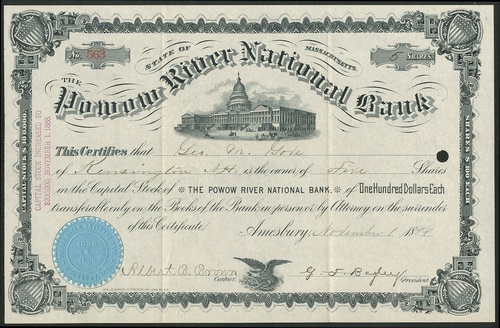 No. 563
STATE OF MASSACHUSETTS.
5 SHARES
THE
Powow River National Bank
This Certifies that Geo. M. Gove
of Kensington N.H. is the owner of Five Shares
in the Capital Stock of THE POWOW RIVER NATIONAL BANK. of One Hundred Dollars Each
transferable only on the Books of the Bank in person or by Attorney on the surrender
of this Certificate. Amesbury, November 1 1888
Albert B. Brown
Cashier.
President
CAPITAL STOCK
CAPITAL STOCK INCREASED TO
NOVEMBER 1, 1888.
SHARES $100 EACH